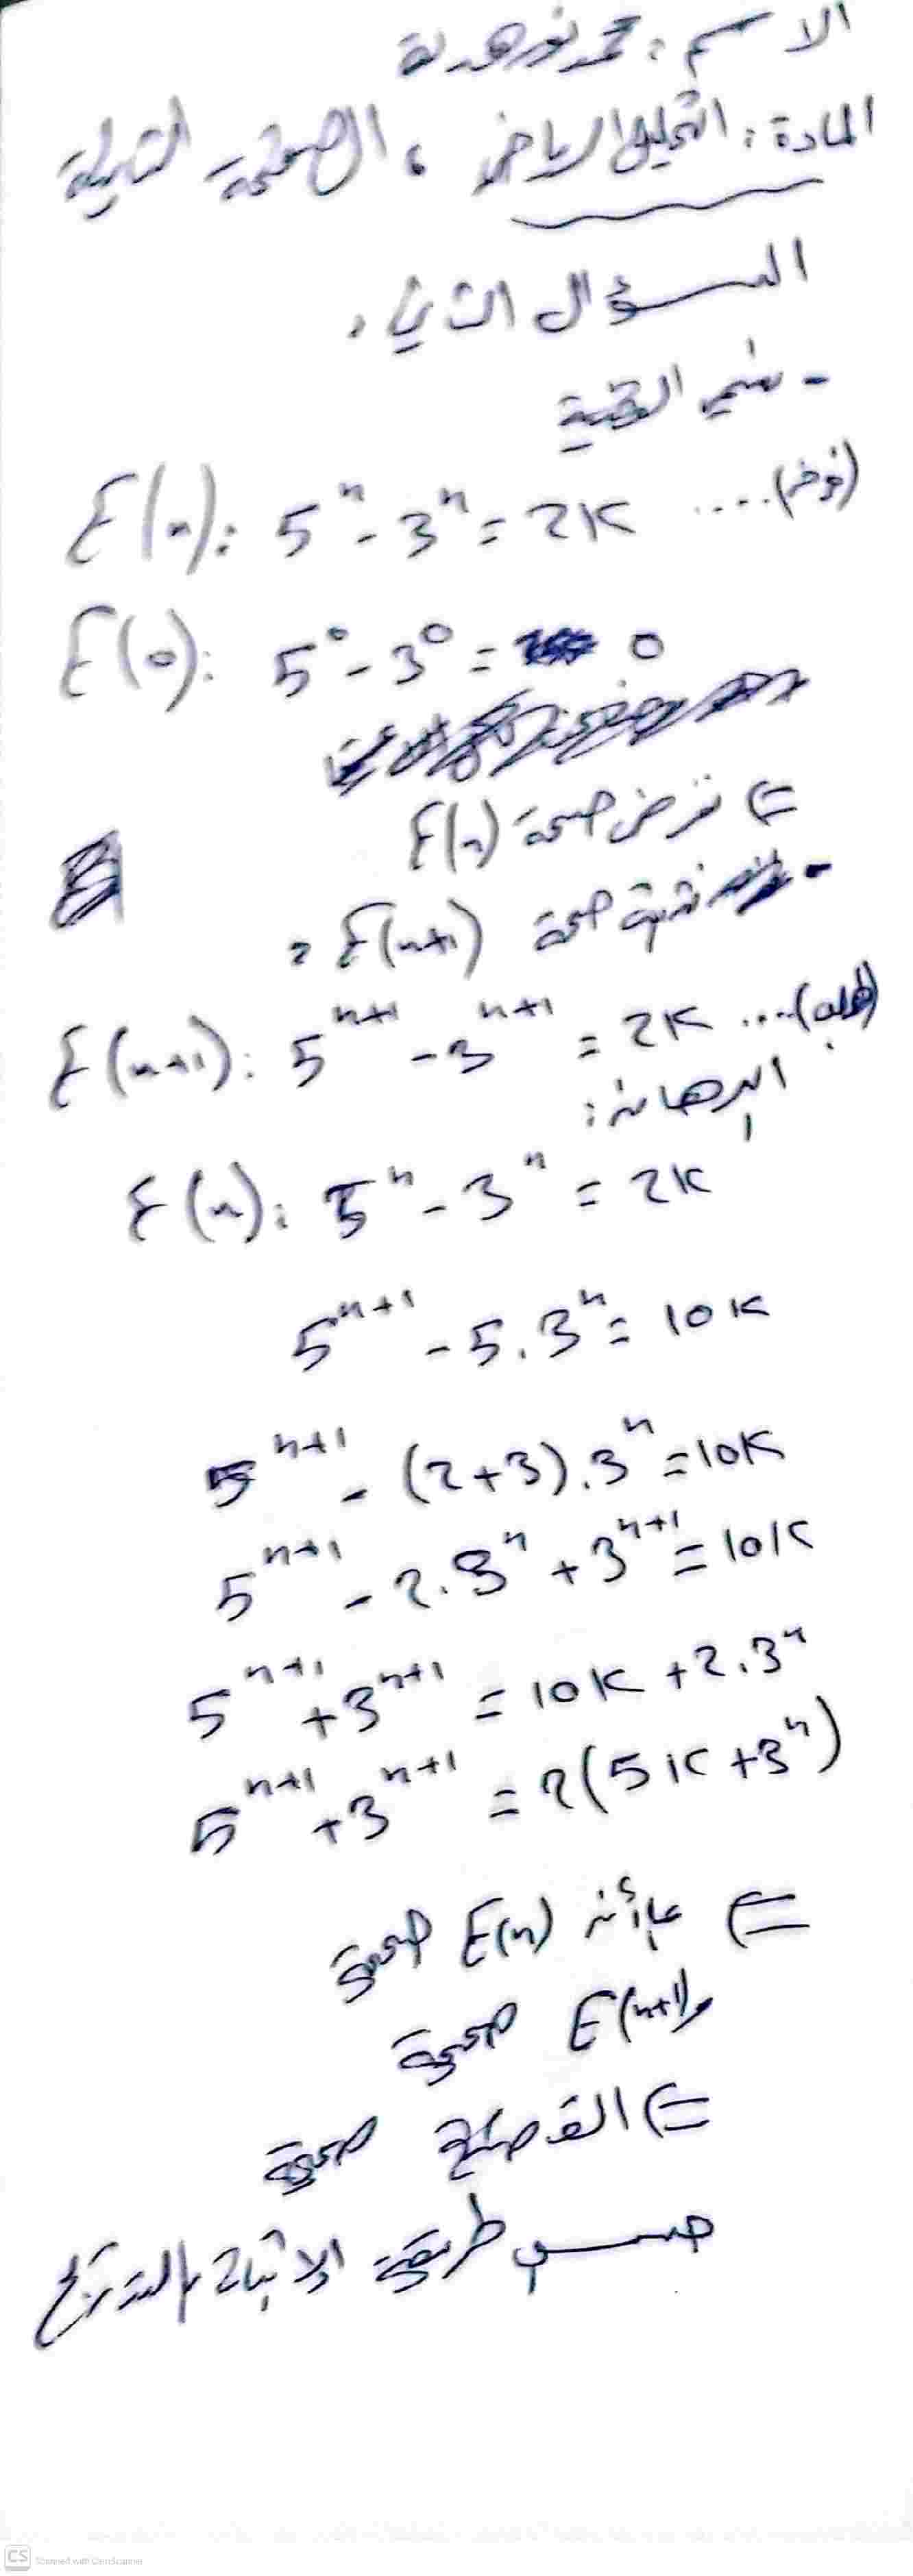 الاسم : محمد نور هدية
المادة : التحليل الرياضي ، الصفحة الثانية
السؤال الثاني ،
- نسمي القضية
E(n): 5^n - 3^n = 2K .... (فرض)
E(0): 5^0 - 3^0 = 0
⇐ نفرض صحة E(n)
- صحة E(n+1)
E(n+1): 5^{n+1} - 3^{n+1} = 2K ... (طلب)
البرهان :
E(n): 5^n - 3^n = 2K
5^{n+1} - 5.3^n = 10K
5^{n+1} - (2+3).3^n = 10K
5^{n+1} - 2.3^n + 3^{n+1} = 10K
5^{n+1} + 3^{n+1} = 10K + 2.3^n
5^{n+1} + 3^{n+1} = 2(5K + 3^n)
⇐ بما أن E(n) صحيحة
و E(n+1) صحيحة
⇐ القضية صحيحة
حسب طريقة الإثبات بالتدريج
CS Scanned with CamScanner